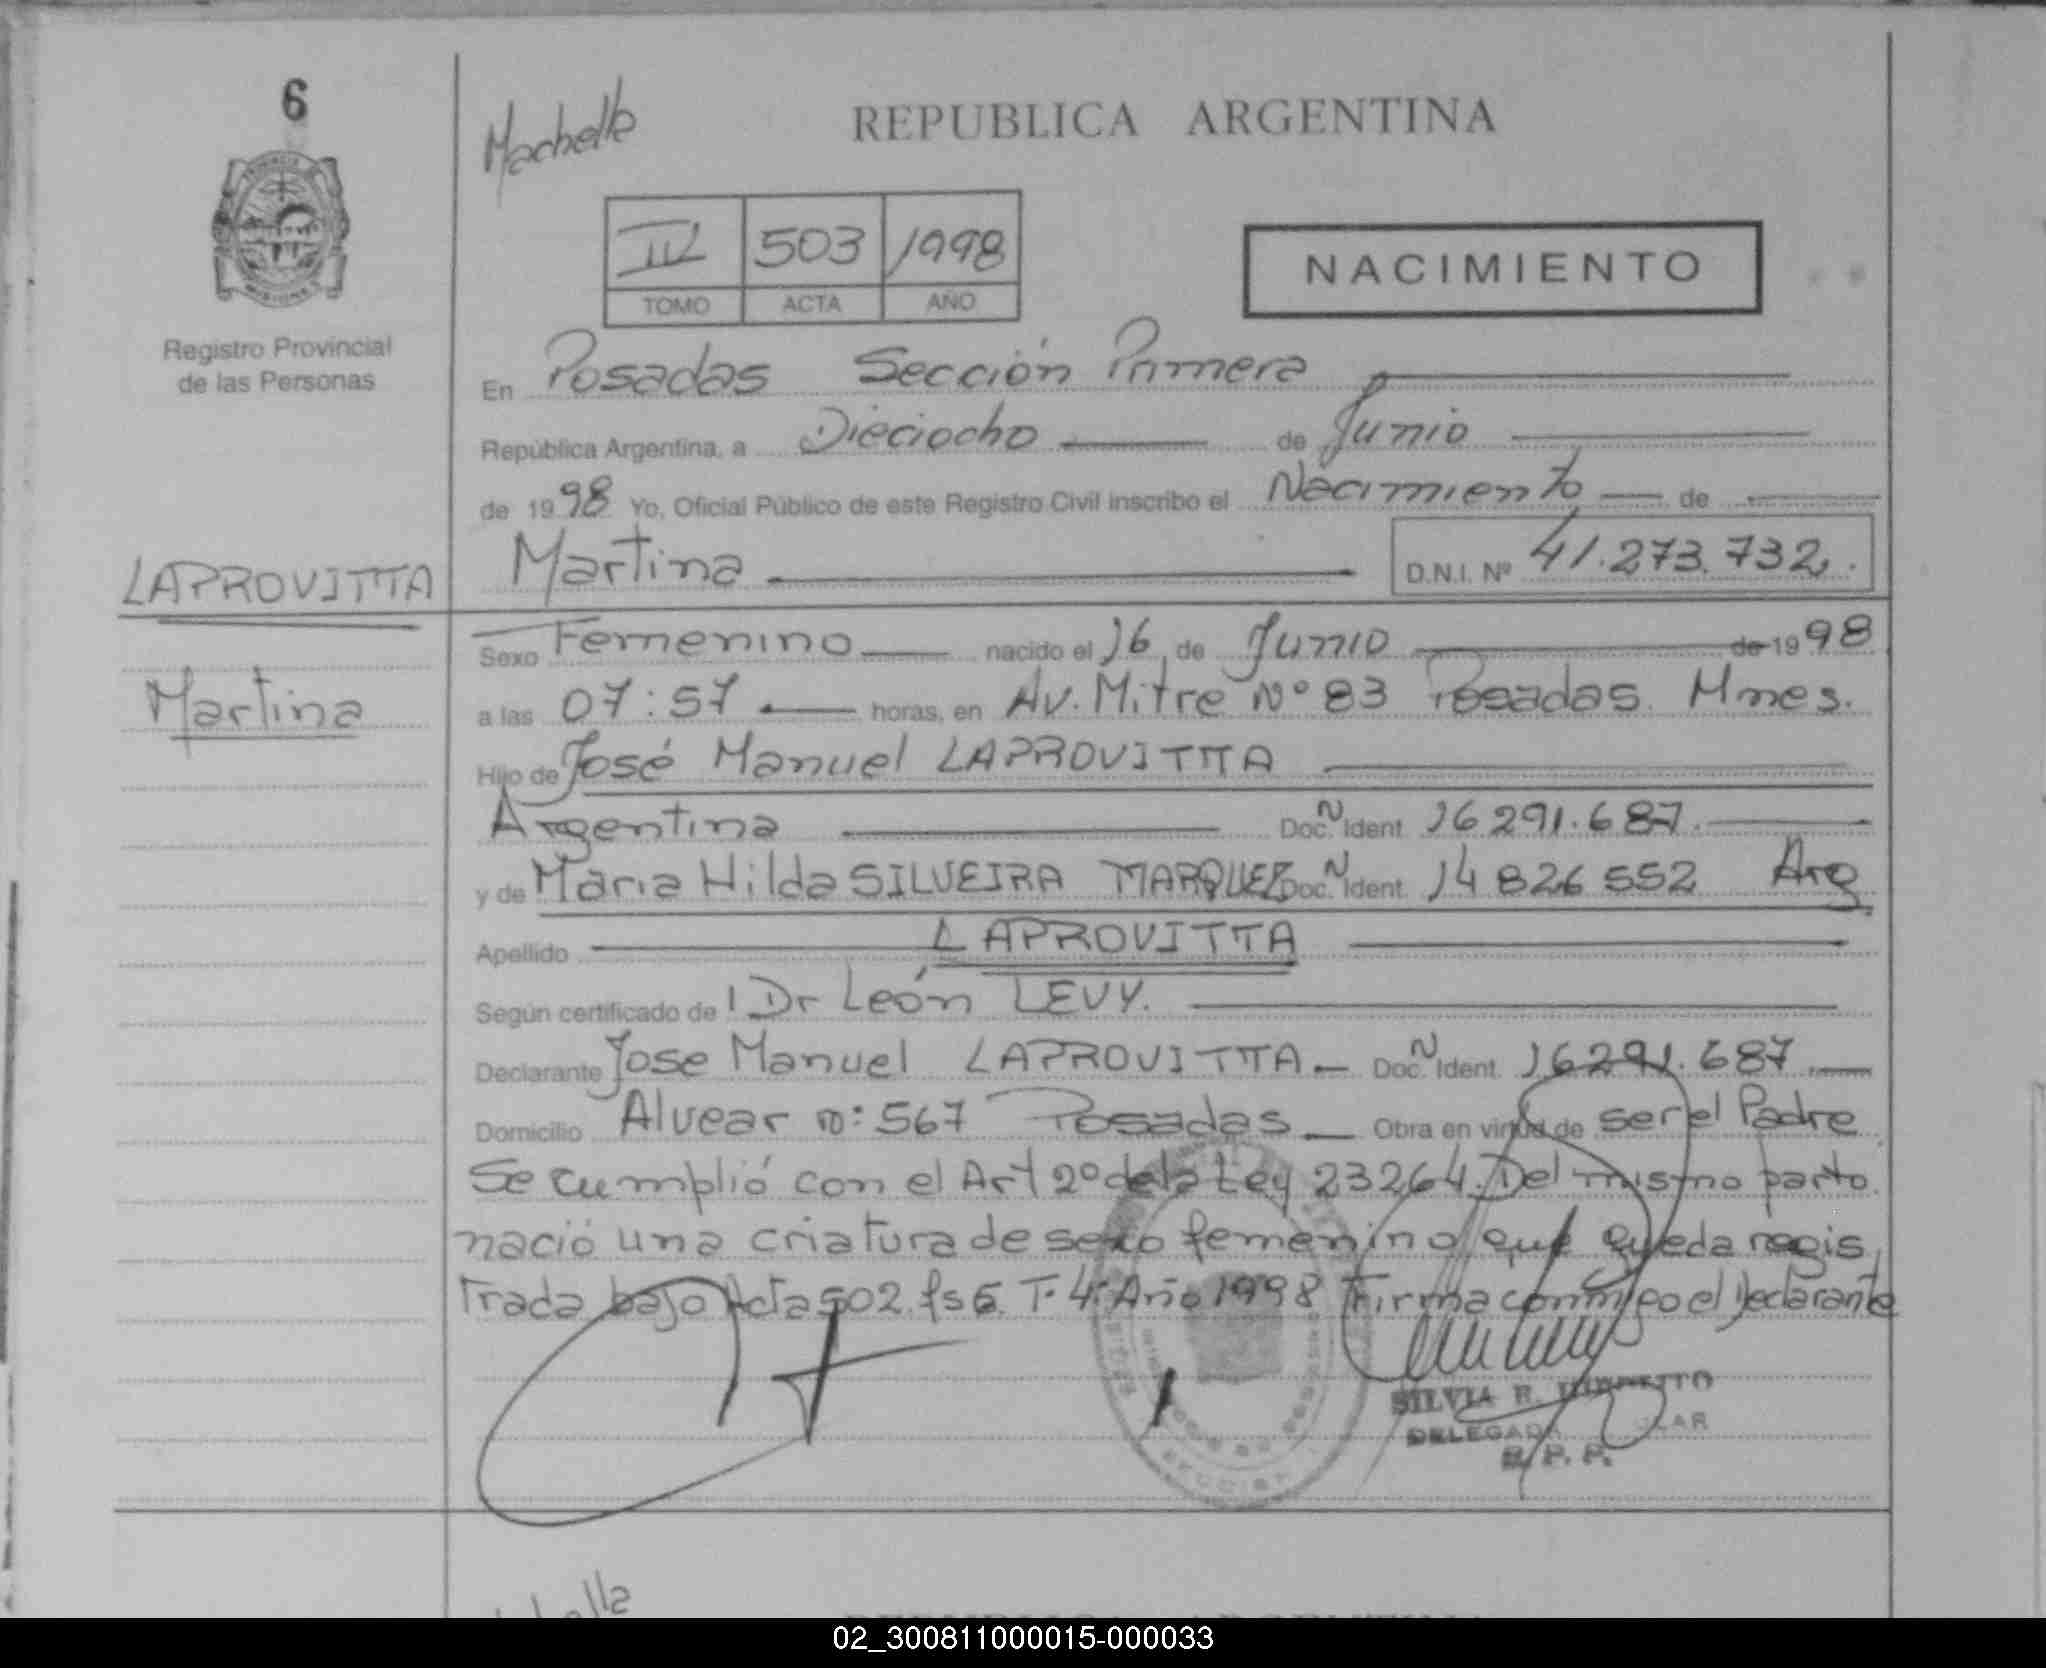 6
Machelle
REPUBLICA ARGENTINA
503 1998
TOMO ACTA AÑO
NACIMIENTO
Registro Provincial
de las Personas
En Posadas Sección Primera
República Argentina, a Dieciocho de Junio
de 1998 Yo, Oficial Público de este Registro Civil inscribo el Nacimiento de
Martina D.N.I. Nº 41.273.732.
LAPROVITTA
Martina
Sexo Femenino nacido el 16 de Junio de 1998
a las 07:57 horas, en Av. Mitre Nº 83 Posadas. Mnes.
Hijo de José Manuel LAPROVITTA
Argentina Doc. Ident. 16291.687.
y de Maria Hilda SILVEIRA MARQUEZ Doc. Ident. 14826552 Arg.
Apellido LAPROVITTA
Según certificado de Dr León LEVY.
Declarante Jose Manuel LAPROVITTA Doc. Ident. 16291.687
Domicilio Alvear nº: 567 Posadas Obra en virtud de ser el Padre
Se cumplió con el Art 2º de la Ley 23264. Del mismo parto
nació una criatura de sexo femenino que queda regis
trada bajo Acta 502. fs 6. T. 4. Año 1998 Firma conmigo el Declarante
SILVIA R.
DELEGADA
R. P. P.
02_300811000015-000033